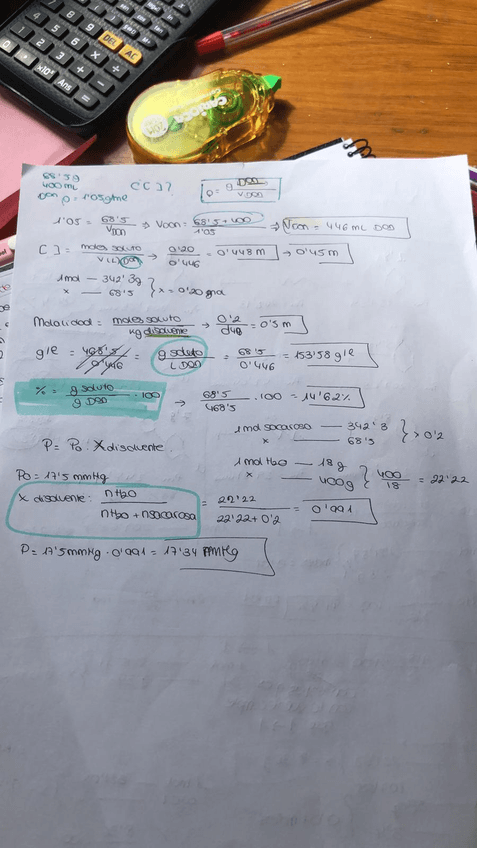 7 8 9 DEL AC
4 5 6 × ÷
1 2 3 + −
0 . ×10ˣ Ans =
CARIOCA
68'5g
400mL
Dson ρ = 1'05g/me
[C]?
ρ = g DSD / V DSD
1'05 = 68'5 / VDSN ⇒ VDSN = 68'5 + 400 / 1'05 ⇒ VDSN = 446 mL DSD
[ ] = moles soluto / V(L) DSD → 0'20 / 0'446 = 0'448 m → 0'45 m
1mol — 342'3g
x — 68'5 } x = 0'20 mol
Molalidad = moles soluto / kg disolvente → 0'2 / 0'4 = 0'5 m
g/e = 468'5 / 0'446 = g soluto / L DSD = 68'5 / 0'446 = 153'58 g/e
% = g soluto / g DSD · 100 → 68'5 / 468'5 · 100 = 14'62%
1mol sacarosa — 342'3
x — 68'5 } > 0'2
P = P₀ · X disolvente
1mol H2O — 18g
x — 400g } 400 / 18 = 22'22
P₀ = 17'5 mmHg
x disolvente: nH2O / nH2O + nsacarosa = 22'22 / 22'22 + 0'2 = 0'991
P = 17'5mmHg · 0'991 = 17'34 mmHg